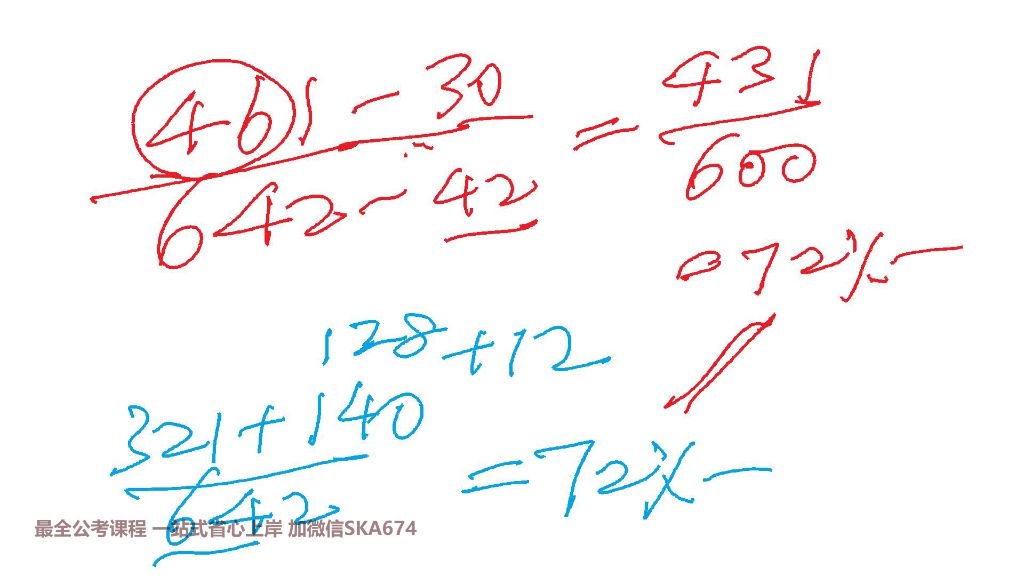 461 - 30
642 - 42
= 431
600
072%-
128+12
321+140
642
=72%-
最全公考课程 一站式省心上岸 加微信SKA674